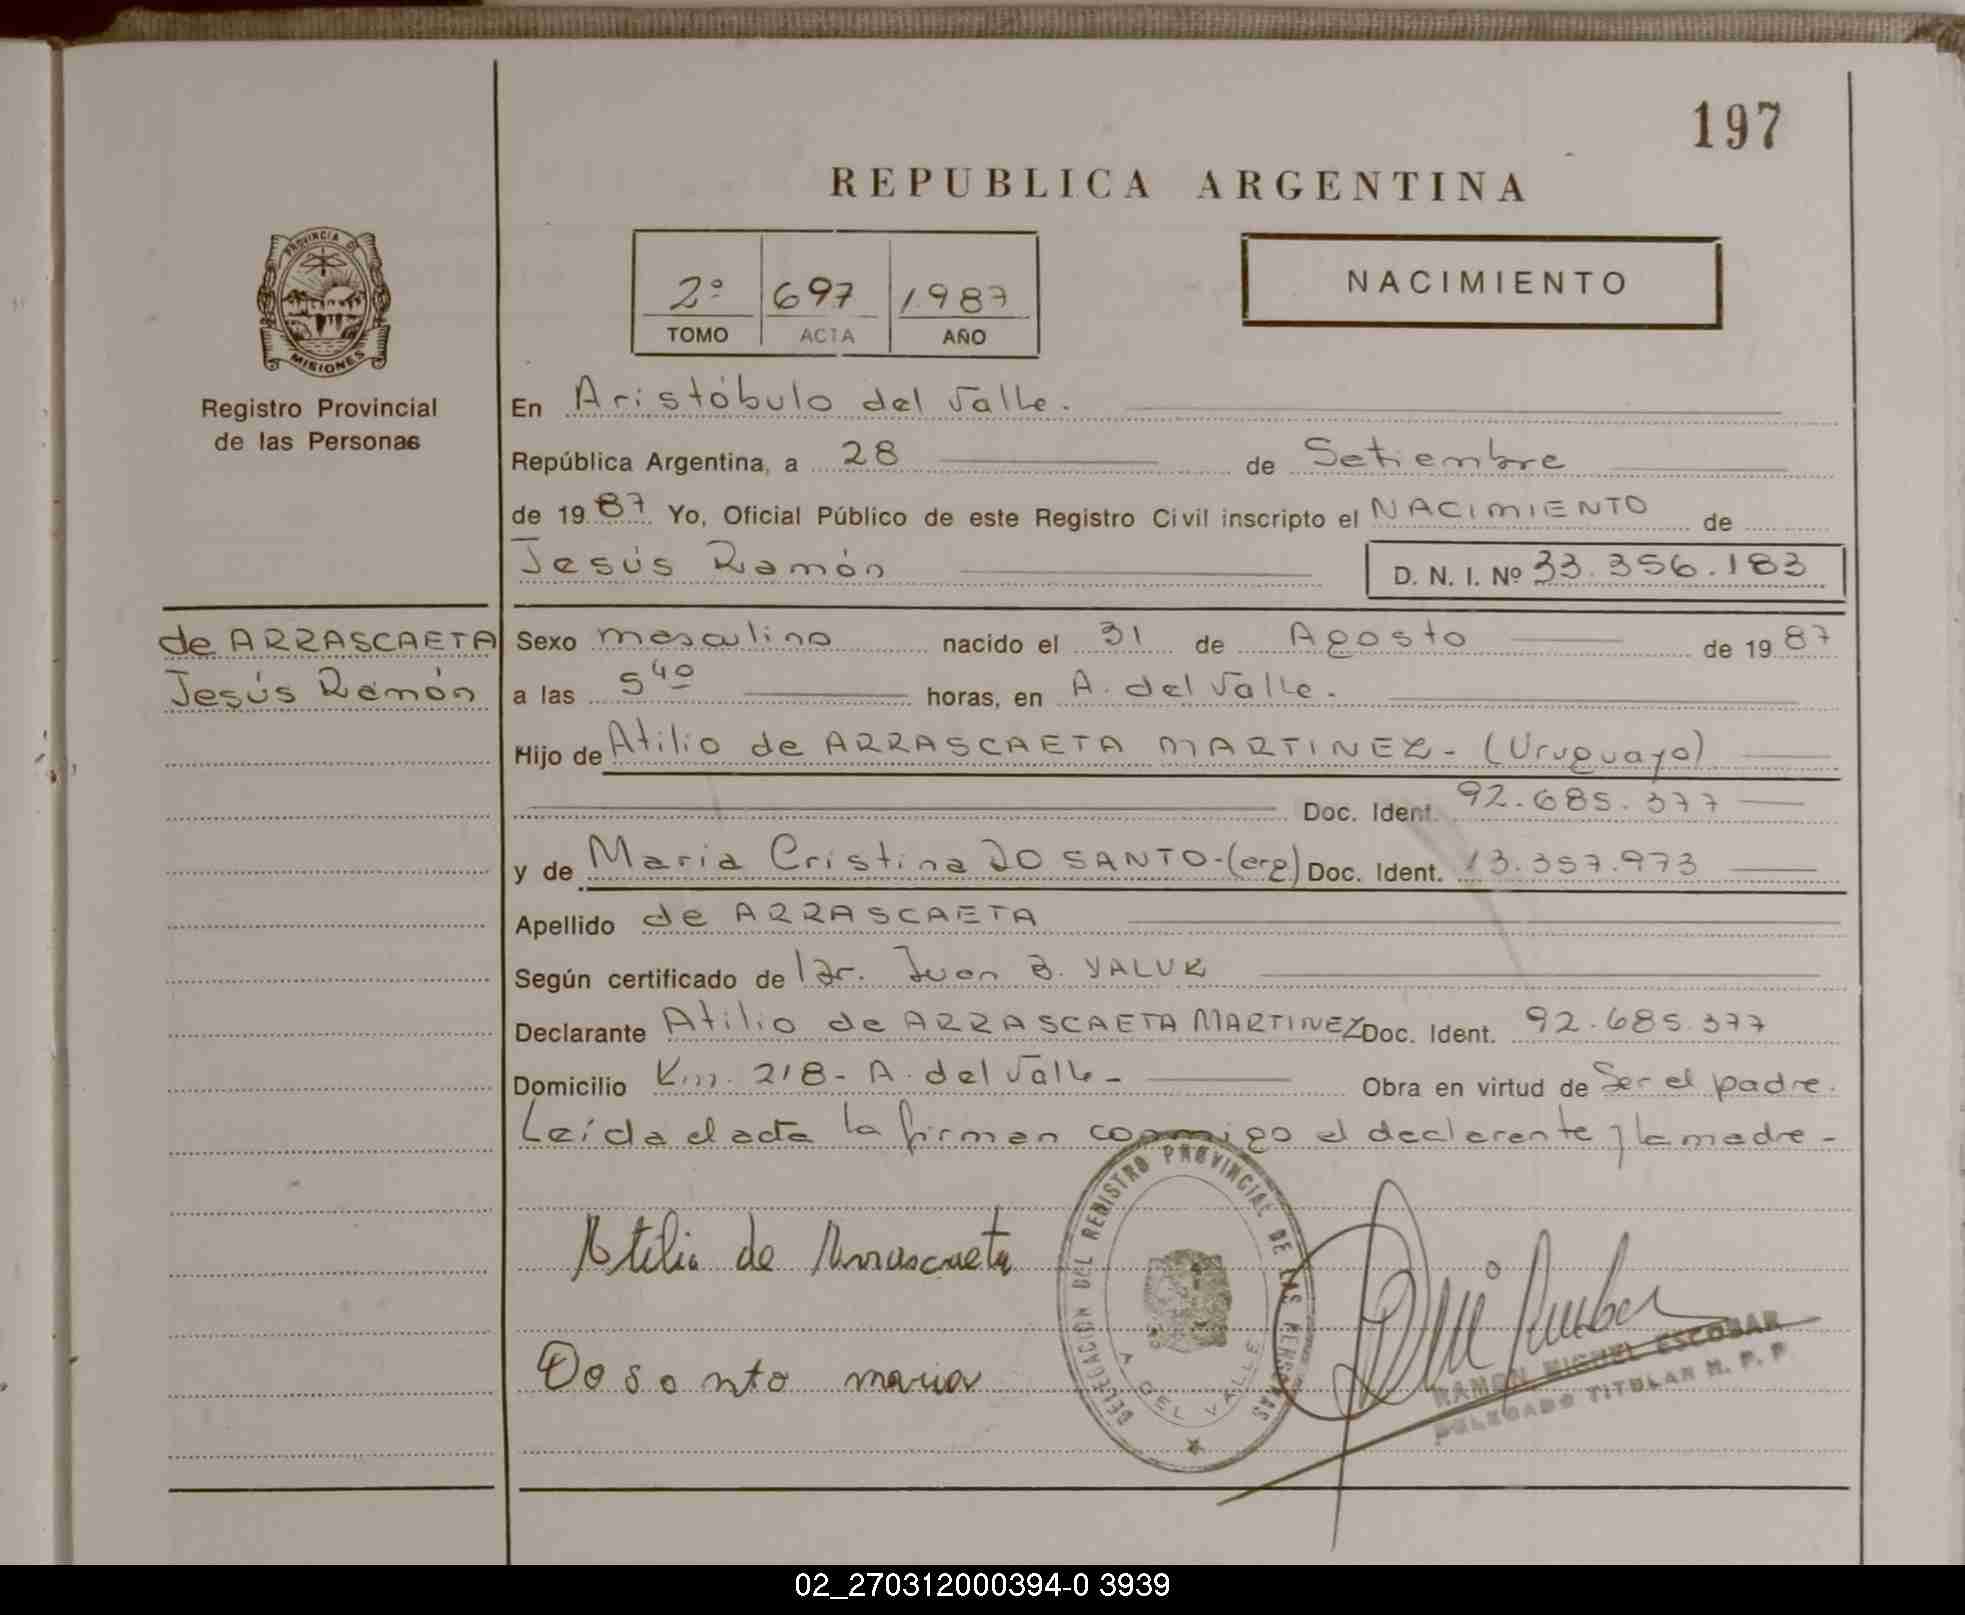 197
REPUBLICA ARGENTINA
PROVINCIA DE
MISIONES
Registro Provincial
de las Personas
2º 697 1987
TOMO ACTA AÑO
NACIMIENTO
En Aristóbulo del Valle.
República Argentina, a 28 de Setiembre
de 1987 Yo, Oficial Público de este Registro Civil inscripto el NACIMIENTO de
Jesús Ramón D. N. I. Nº 33.356.183
de ARRASCAETA
Jesús Ramón
Sexo masculino nacido el 31 de Agosto de 1987
a las 5 40 horas, en A. del Valle.
Hijo de Atilio de ARRASCAETA MARTINEZ - (Uruguayo)
Doc. Ident. 92.685.377
y de Maria Cristina DO SANTO - (arg) Doc. Ident. 13.357.973
Apellido de ARRASCAETA
Según certificado de Dr. Juan B. YALUK
Declarante Atilio de ARRASCAETA MARTINEZ Doc. Ident. 92.685.377
Domicilio Km. 218 - A. del Valle - Obra en virtud de Ser el padre.
Leída el acta la firman conmigo el declarante y la madre -
Atilio de Arrascaeta
Do santo maria
DELEGACION DEL REGISTRO PROVINCIAL DE LAS PERSONAS
A. DEL VALLE
RAMON MIGUEL ESCOBAR
DELEGADO TITULAR R. P. P.
02_270312000394-0 3939